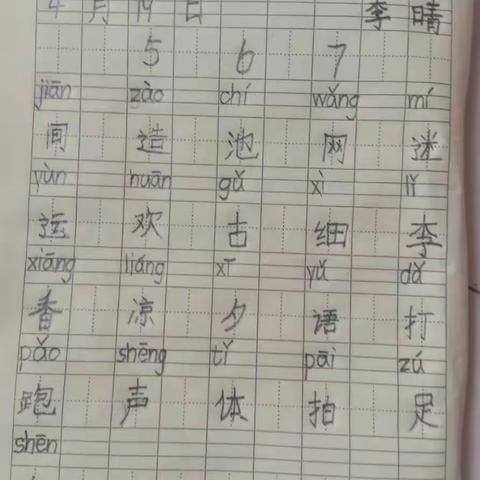 4月19日 李晴
5 6 7
jiān zào chí wǎng mí
间 造 池 网 迷
yùn huān gǔ xì lǐ
运 欢 古 细 李
xiāng liáng xī yǔ dǎ
香 凉 夕 语 打
pǎo shēng tǐ pāi zú
跑 声 体 拍 足
shēn